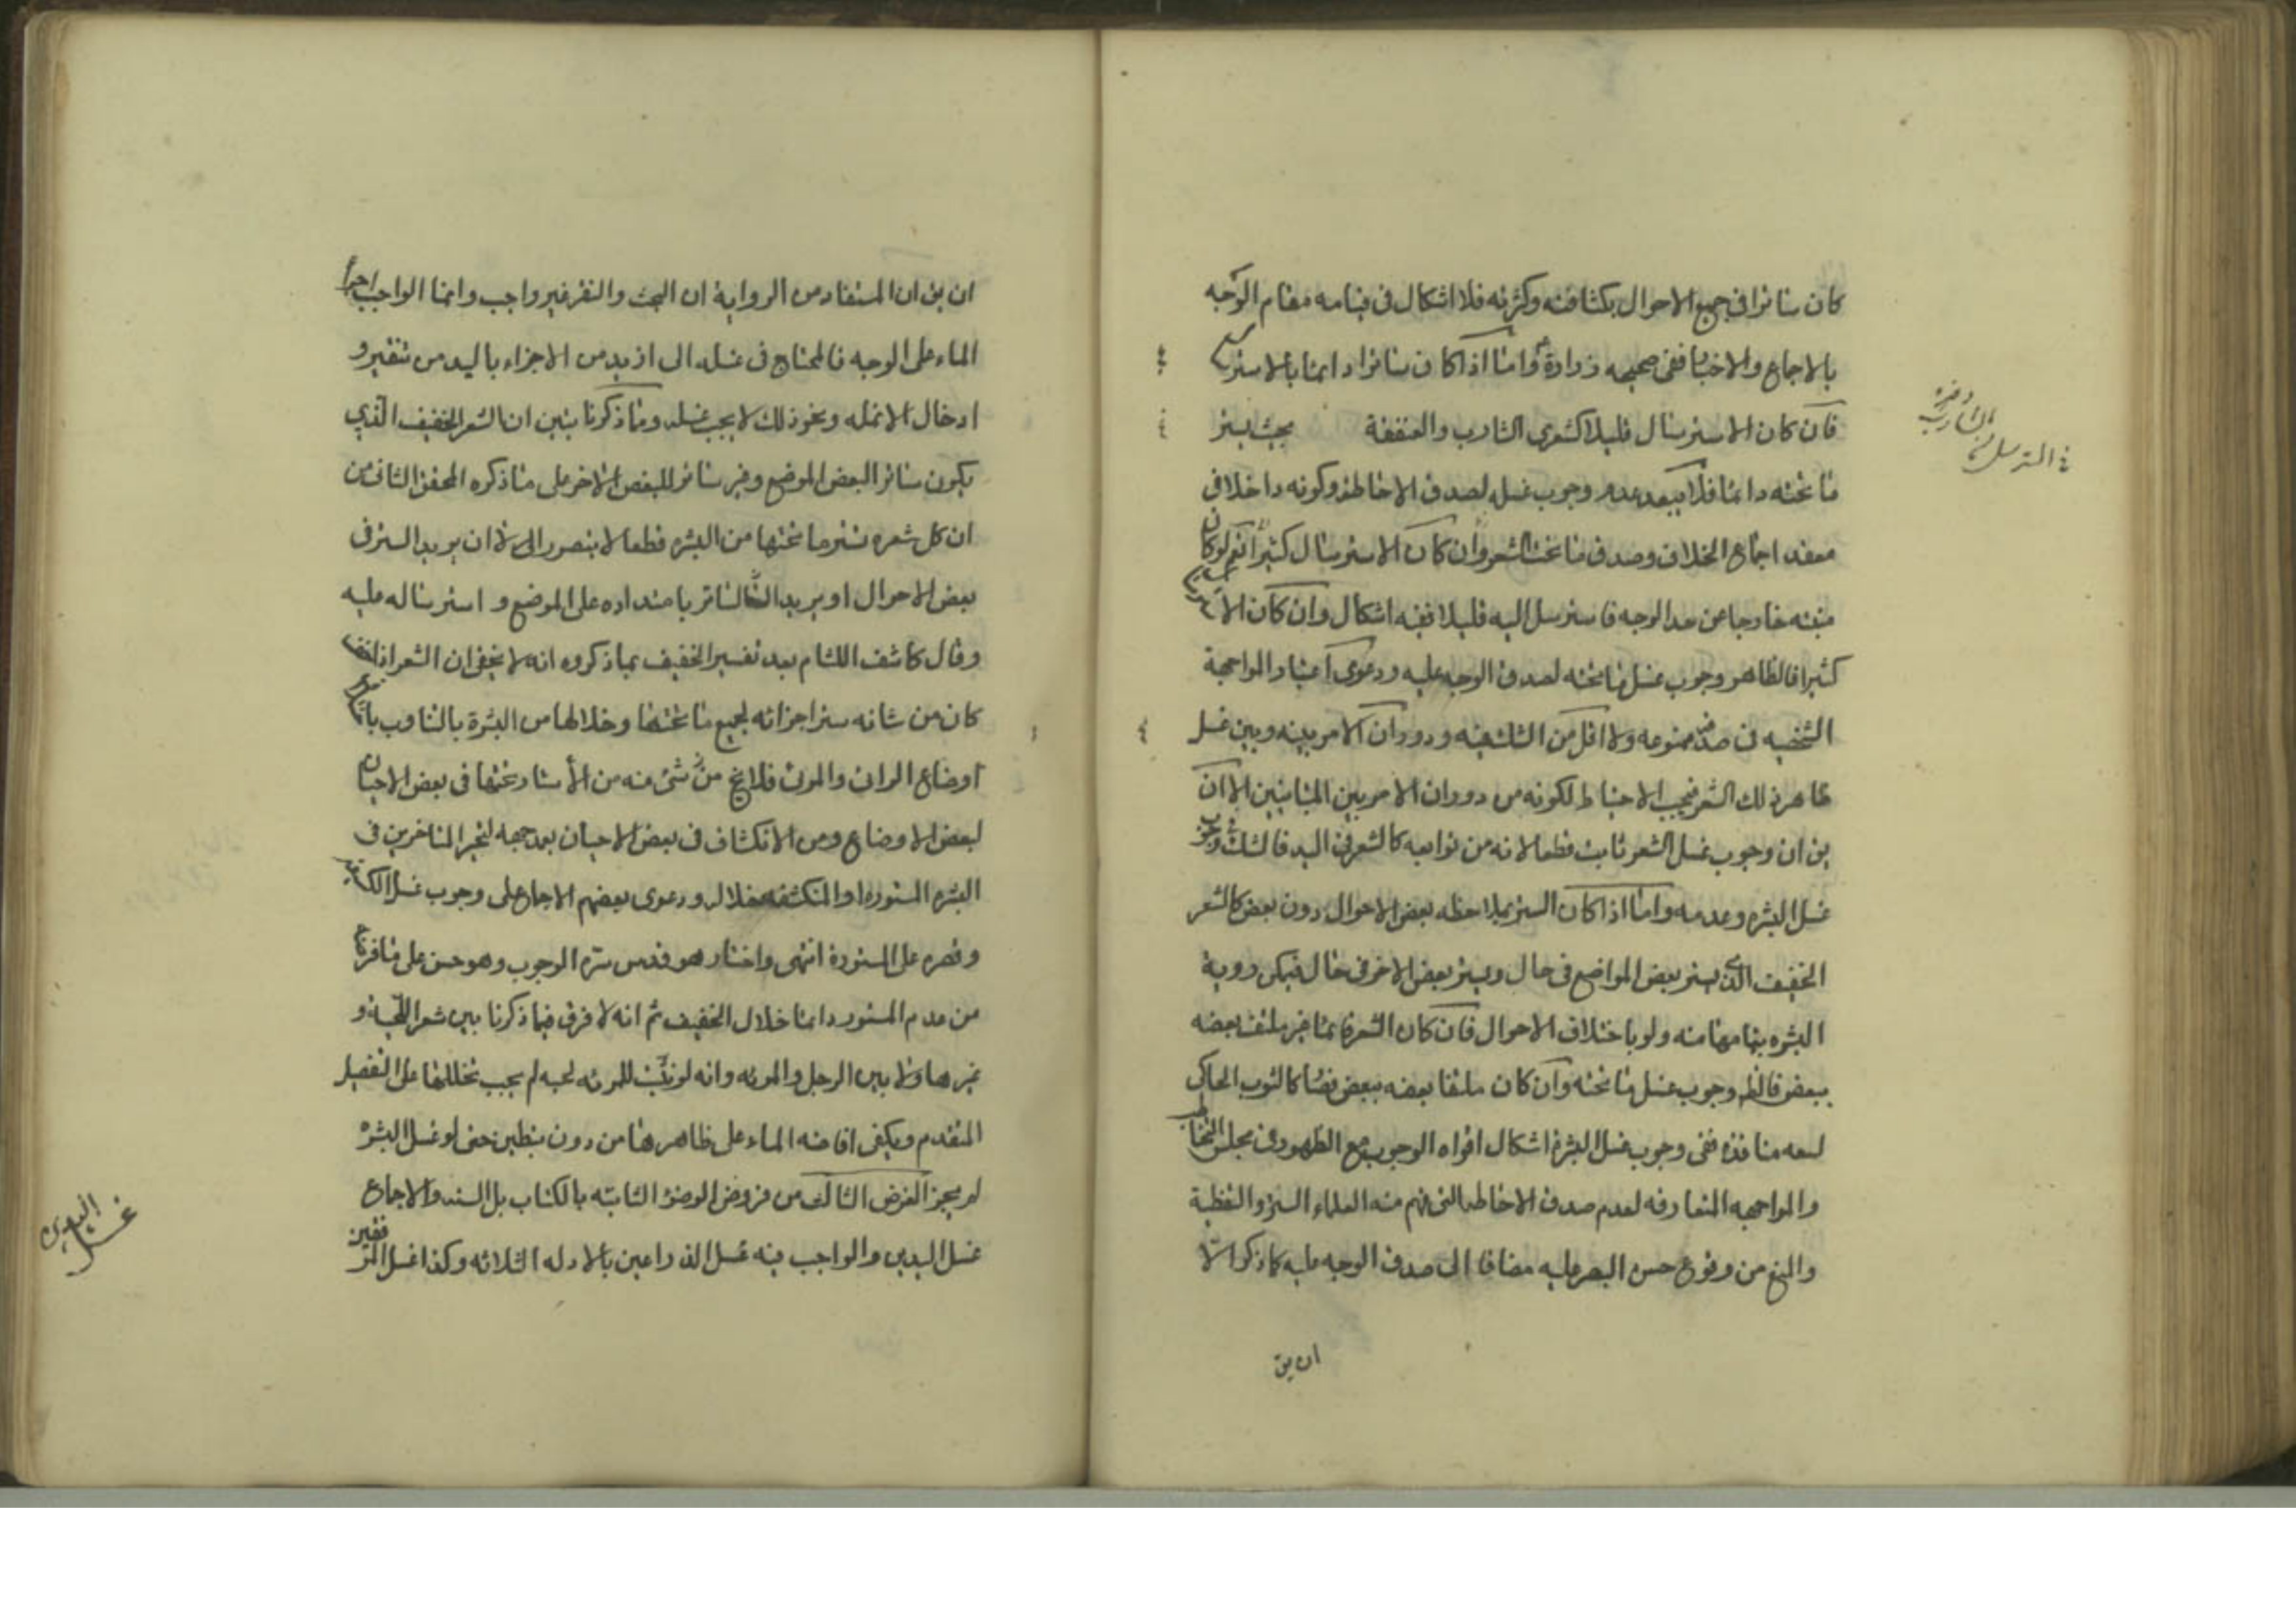 كان ساترا في جميع الاحوال بكثافته وكثرته فلا اشكال في قيامه مقام الوجه
بالاجماع والاخبار ففي صحيحه زرارة واما اذا كان ساترا دائما بالاسترسال
فان كان الاسترسال قليلا كشعرى الشارب والعنفقة بحيث يستر
ما تحته دائما فلا يبعد عدم وجوب غسله لصدق الاحاطة وكونه داخلا في
معقد اجماع الخلاف وصدق ما تحت الشعر وان كان الاسترسال كثيرا نعم لو كان
منبته خارجا عن حد الوجه فاسترسل اليه قليلا ففيه اشكال وان كان الاسترسال
كثيرا فالظاهر وجوب غسل ما تحته لصدق الوجه عليه ودعوى اعتبار المواجهة
الشخصيه في صدقه ممنوعه ولا اقل من الشك فيه ودوران الامر بينه وبين غسل
ظاهر ذلك الشعر فيجب الاحتياط لكونه من دوران الامر بين المتباينين الا ان
يق ان وجوب غسل الشعر ثابت قطعا لانه من توابعه كالشعر في اليد فالشك في وجوب
غسل البشره وعدمه واما اذا كان الستر بملاحظه بعض الاحوال دون بعض كالشعر
الخفيف الذى يستر بعض المواضع في حال ويستر بعض الاخر في حال فيمكن روية
البشره بتمامها منه ولو باختلاف الاحوال فان كان الشعر قائما غير ملتف بعضه
ببعض فالظ وجوب غسل ما تحته وان كان ملتفا بعضه ببعض كالثوب الحاكى
لسعه منافذه ففى وجوب غسل البشرة اشكال اقواه الوجوب مع الظهور في مجلس التخاطب
والمواجهه المتعارفه لعدم صدق الاحاطه التى فهم منه العلماء الستر والتغطية
والمنع من وقوع حس البصر عليه مضافا الى صدق الوجه عليه كما ذكر الا
ان يق
المسترسل في الشارب وغيره
ان يق ان المستفاد من الرواية ان البحث والنقر غير واجب وانما الواجب اجراء
الماء على الوجه فالمحتاج في غسله الى ازيد من الاجزاء باليد من تنقير و
ادخال الانمله ونحو ذلك لا يجب غسله ومما ذكرنا يتبين ان الشعر الخفيف الذي
يكون ساترا لبعض الموضع وغير ساتر للبعض الاخر على ما ذكره المحقق الثانى من
ان كل شعره تستر ما تحتها من البشره قطعا لا يتصور الا ان يريد الستر في
بعض الاحوال او يريد الساتر بامتداده على الموضع و استرساله عليه
وقال كاشف اللثام بعد تفسير الخفيف بما ذكروه انه لا يخفى ان الشعر اذا خف
كان من شانه ستر اجزائه لجميع ما تحتها وخلالها من البشرة بالتناوب
اوضاع الرائى والمرئى فلا يخ من شئ منه من الأستار تحتها في بعض الاحيان
لبعض الاوضاع ومن الانكشاف في بعض الاحيان بعد جمعه لتحير المتاخرين في
البشره المستوره او المنكشفه خلاله ودعوى بعضهم الاجماع على وجوب غسل
وقصره على المستورة انتهى واختار هو قدس سره الوجوب وهو حسن على ما قررنا
من عدم المستور دائما خلال الخفيف ثم انه لا فرق فيما ذكرنا بين شعر اللحية و
غيرها ولا بين الرجل والمرئه وانه لو نبت للمرئه لحيه لم يجب تخليلها على التفصيل
المتقدم ويكفى افاضه الماء على ظاهرها من دون تبطين حتى لو غسل البشره
لم يجز الفرض الثانى من فروض الوضوء الثابته بالكتاب بل السنه والاجماع
غسل اليدين والواجب فيه غسل الذراعين بالادله الثلاثه وكذا غسل المرفقين
غسل اليدين